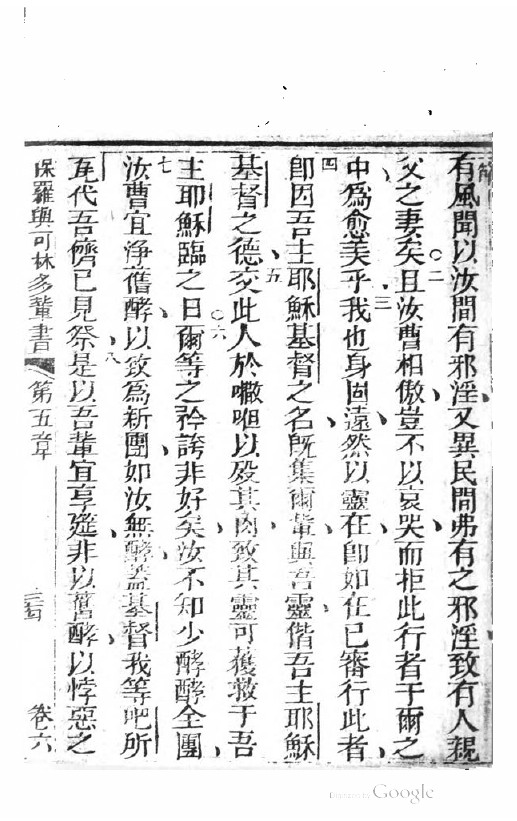 有風聞以汝間有邪淫又異民間弗有之邪淫致有人親
父之妻矣二且汝曹相傲豈不以哀哭而拒此行者于爾之
中為愈美乎三我也身固遠然以靈在即如在已審行此者
四即因吾主耶穌基督之名既集爾輩與吾靈偕吾主耶穌
基督之德五交此人於嗷呾以毀其肉致其靈可獲救于吾
主耶穌臨之日六爾等之矜誇非好矣汝不知少酵酵全團
七汝曹宜淨舊酵以致為新團如汝無酵蓋基督我等吧所
代吾儕已見祭八是以吾輩宜享筵非以舊酵以悖惡之
保羅與可林多輩書 第五章 卷六
Digitized by Google